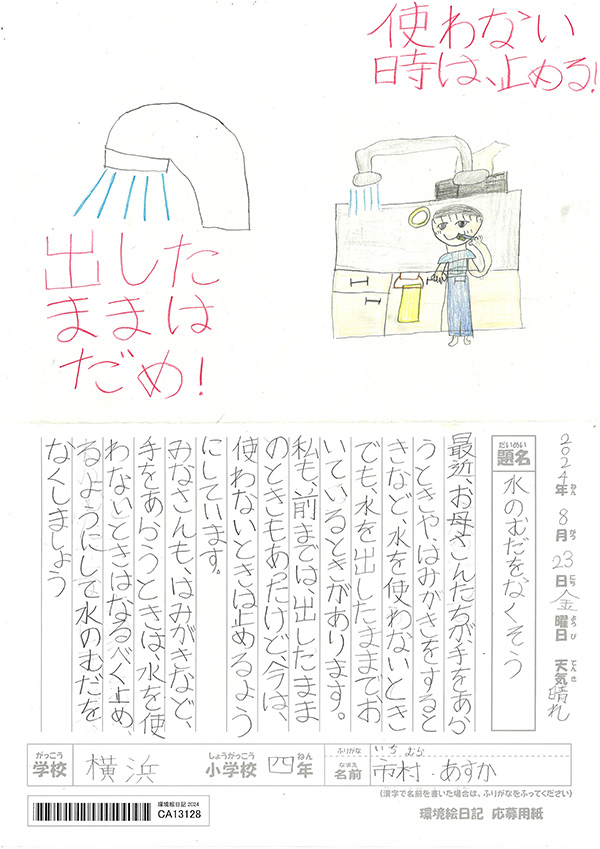 使わない
時は、止める!
出した
ままは
だめ!
2024年ねん 8月がつ 23日にち 金曜日ようび 天気てんき 晴れ
題名だいめい 水のむだをなくそう
最近、お母さんたちが、手をあら
うときや、はみがきをすると
きなど、水を使わないとき
でも、水を出したままでお
いているときがあります。
私も、前までは、出したまま
のときもあったけど、今は、
使わないときは止めるよう
にしています。
みなさんも、はみがきなど、
手をあらうときは、水を使
わないときはなるべく止め、
るようにして水のむだを
なくしましょう
学校がっこう 横浜 小学校しょうがっこう 四年ねん
ふりがな いちむら
名前なまえ 市村 あすか
(漢字で名前を書いた場合は、ふりがなをふってください)
環境絵日記 2024
CA13128
環境絵日記 応募用紙